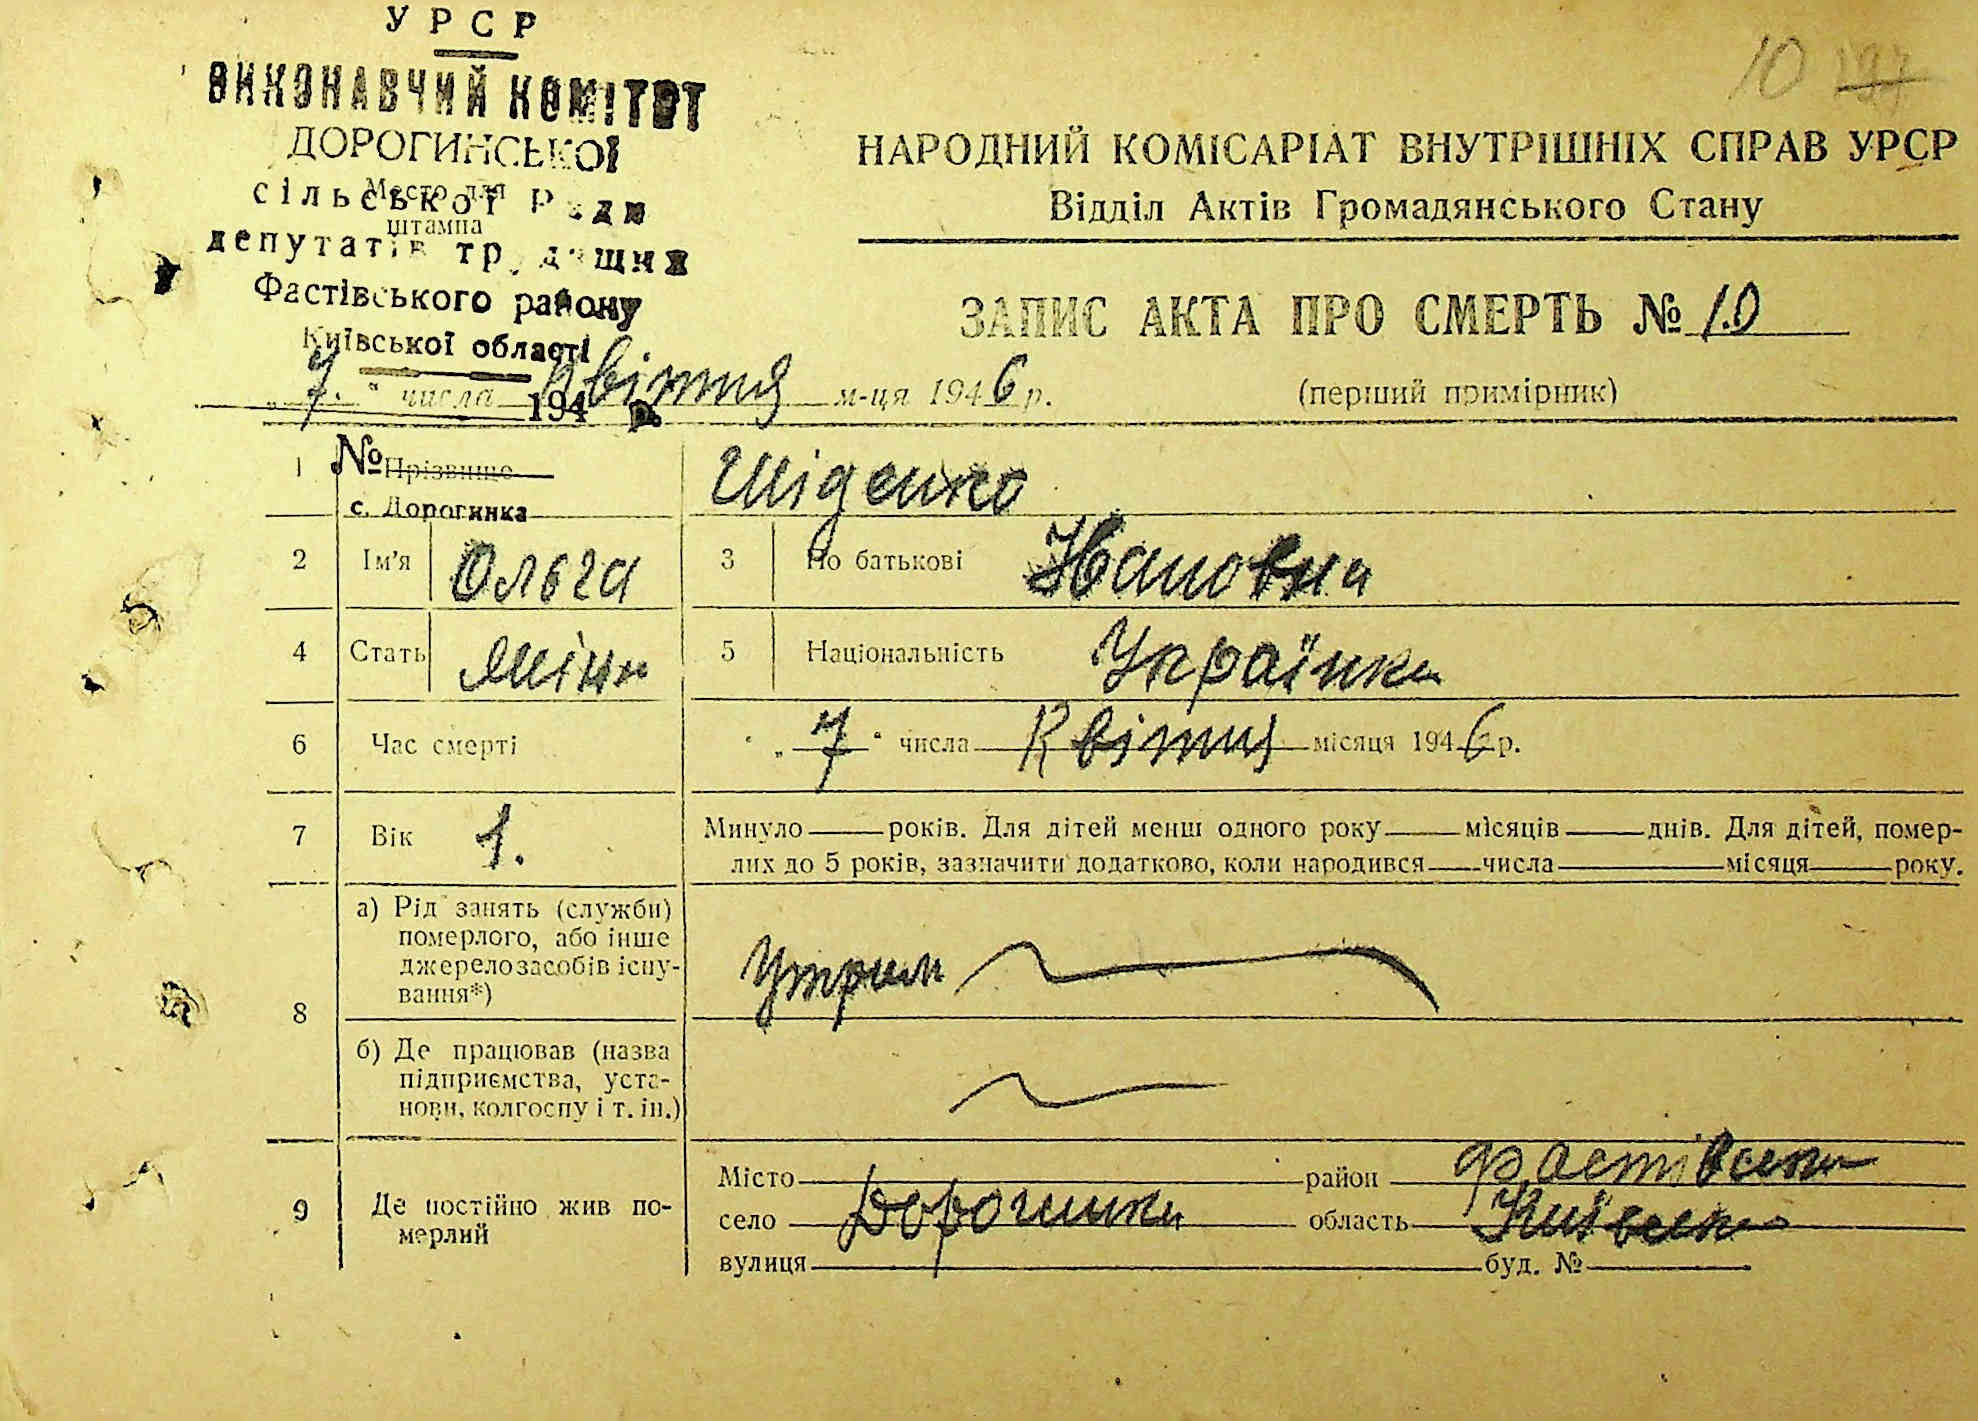 УРСР
ВИКОНАВЧИЙ КОМІТЕТ
ДОРОГИНСЬКОЇ
сільської Ради
Место для
штампа
депутатів трудящих
Фастівського району
Київської області
194 р.
№
с. Дорогинка
10 197
НАРОДНИЙ КОМІСАРІАТ ВНУТРІШНІХ СПРАВ УРСР
Відділ Актів Громадянського Стану
ЗАПИС АКТА ПРО СМЕРТЬ № 10
„7“ числа Квітня м-ця 1946 р.
(перший примірник)
1 Прізвище Шіденко
2 Ім'я Ольга 3 По батькові Івановна
4 Стать жіно 5 Національність Українка
6 Час смерті „7“ числа Квітня місяця 1946 р.
7 Вік 1. Минуло років. Для дітей менш одного року місяців днів. Для дітей, помер-
лих до 5 років, зазначити додатково, коли народився числа місяця року.
8 а) Рід занять (служби)
померлого, або інше
джерело засобів існу-
вання*)
Утрим
б) Де працював (назва
підприємства, уста-
нови, колгоспу і т. ін.)
9 Де постійно жив по-
мерлий
Місто район Фастівськи
село Дорогинка область Київсько
вулиця буд. №